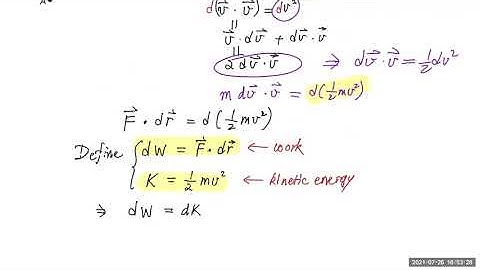 d(v⃗ · v⃗) = dv²
v⃗ · dv⃗ + dv⃗ · v⃗
2 dv⃗ · v⃗ ⇒ dv⃗ · v⃗ = ½ dv²
m dv⃗ · v⃗ = d(½ mv²)
F⃗ · dr⃗ = d(½ mv²)
Define { dW = F⃗ · dr⃗ ← work
K = ½ mv² ← kinetic energy
⇒ dW = dK
2021-07-26 16:53:28